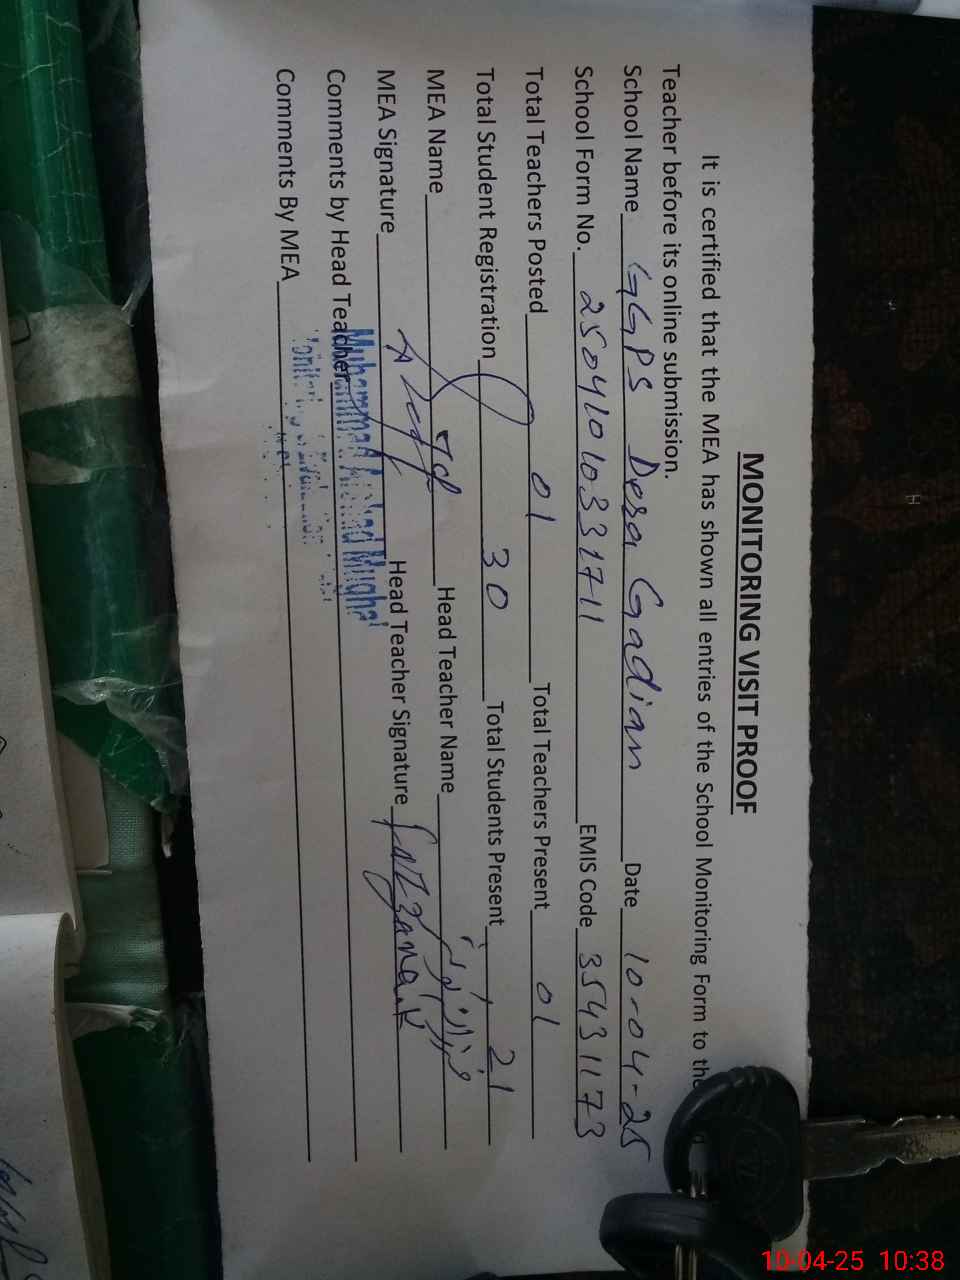 MONITORING VISIT PROOF
It is certified that the MEA has shown all entries of the School Monitoring Form to the
Teacher before its online submission.
School Name GGPS Dera Gadian Date 10-04-25
School Form No. 25041010331711 EMIS Code 35431173
Total Teachers Posted 01 Total Teachers Present 01
Total Student Registration 30 Total Students Present 21
MEA Name Head Teacher Name
MEA Signature Head Teacher Signature Farzana
Comments by Head Teacher
Muhammad Arshad Mughal
Comments By MEA
10-04-25 10:38